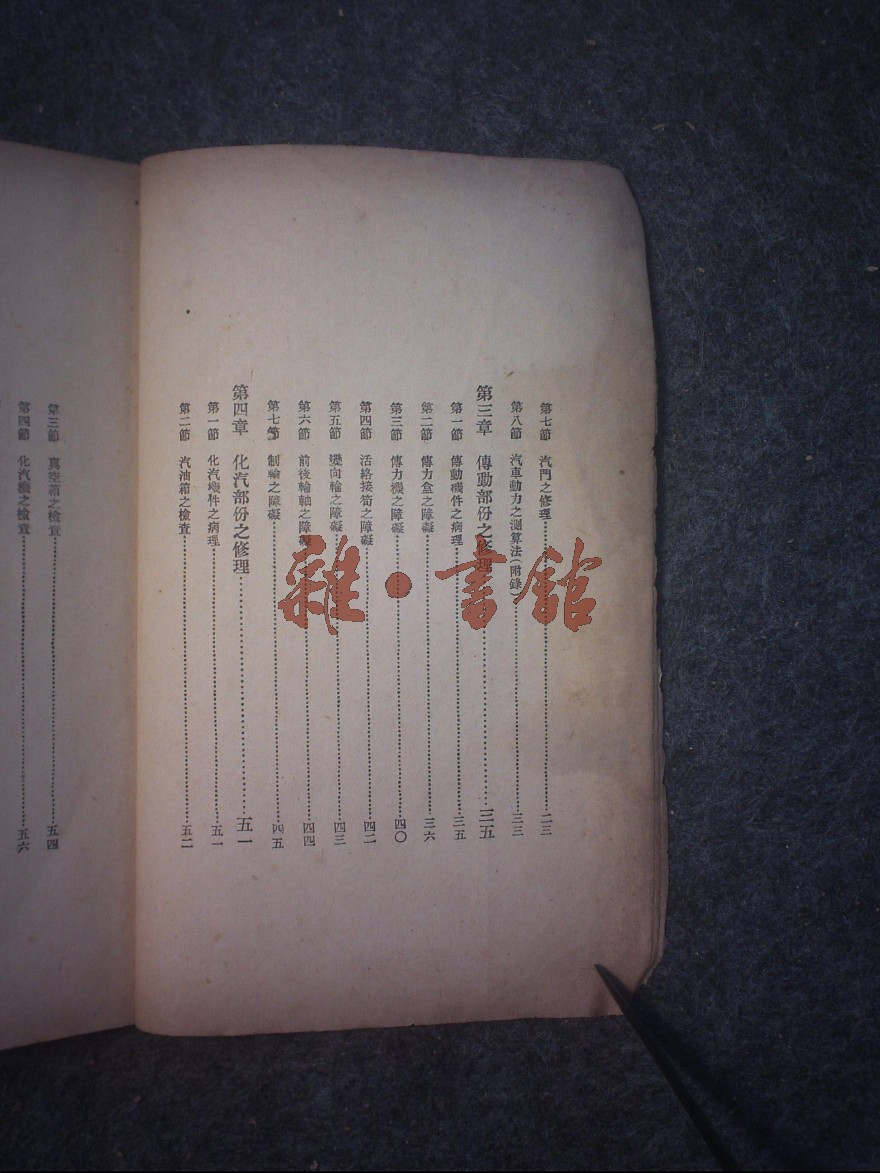 第七節 汽門之修理 二三
第八節 汽車動力之測算法(附錄) 三三
第三章 傳動部份之修理 三五
第一節 傳動機件之病理 三五
第二節 傳力盒之障礙 三六
第三節 傳力機之障礙 四〇
第四節 活絡接筍之障礙 四二
第五節 變向輪之障礙 四三
第六節 前後輪軸之障礙 四四
第七節 制輪之障礙 四五
第四章 化汽部份之修理 五一
第一節 化汽機件之病理 五一
第二節 汽油箱之檢查 五二
第三節 真空箱之檢查 五四
第四節 化汽機之檢查 五六
雜·書館